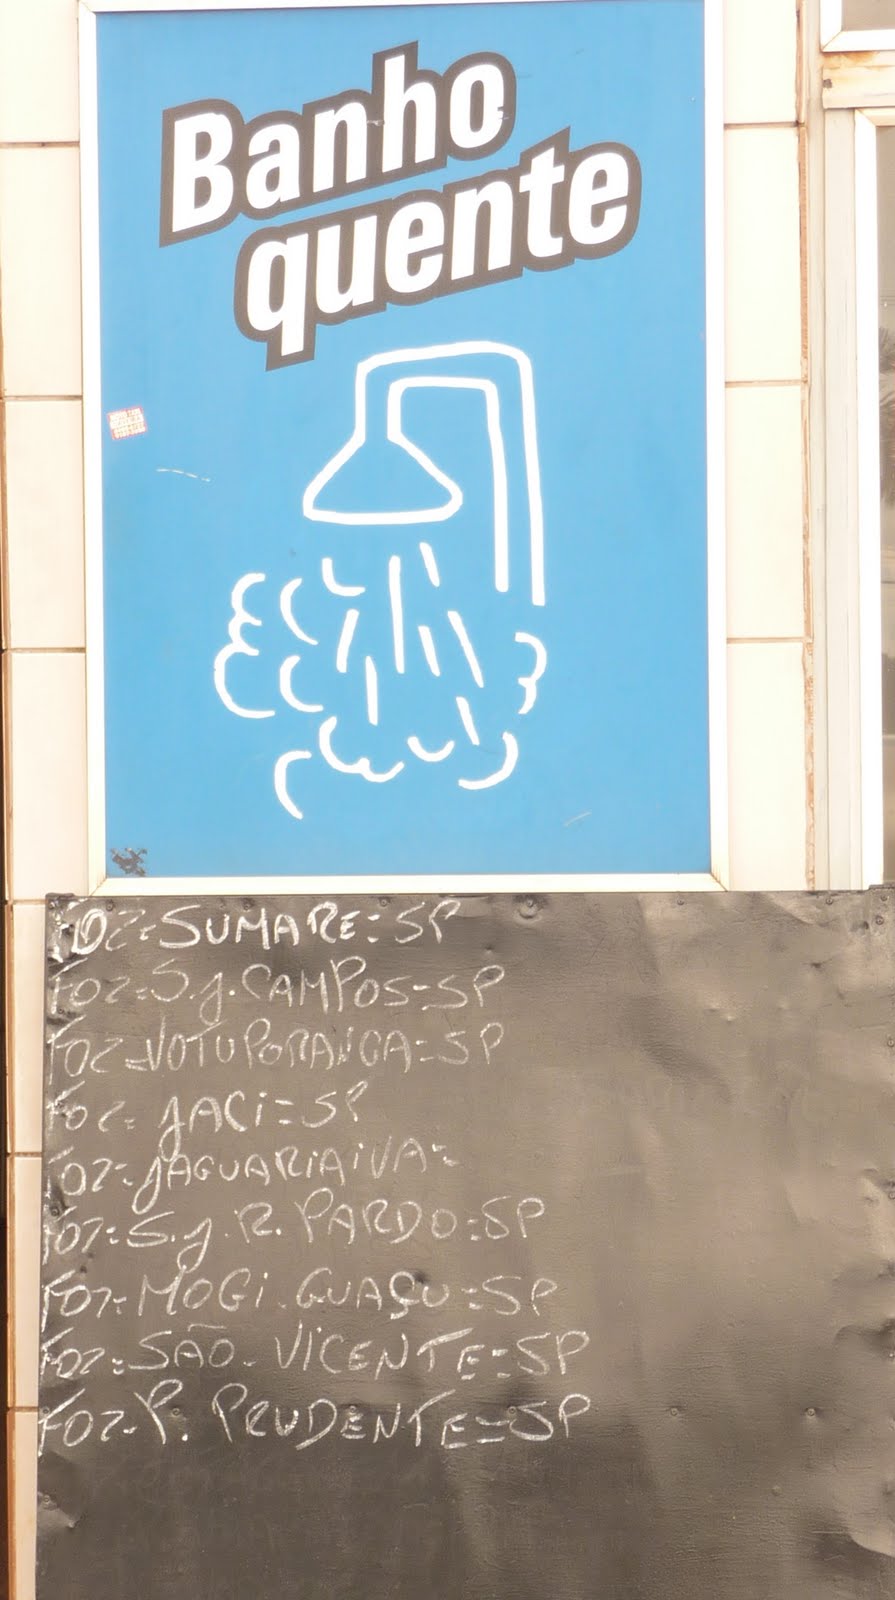 Banho
quente
FOZ=SUMARE=SP
FOZ=S.J.CAMPOS-SP
FOZ=VOTUPORANGA=SP
FOZ=JACi=SP
FOZ=JAGUARiAiVA=
FOZ=S.J.R.PARDO=SP
FOZ=MOGi.GUAÇU=SP
FOZ=SÃO.VICENTE=SP
FOZ-P.PRUDENTE=SP